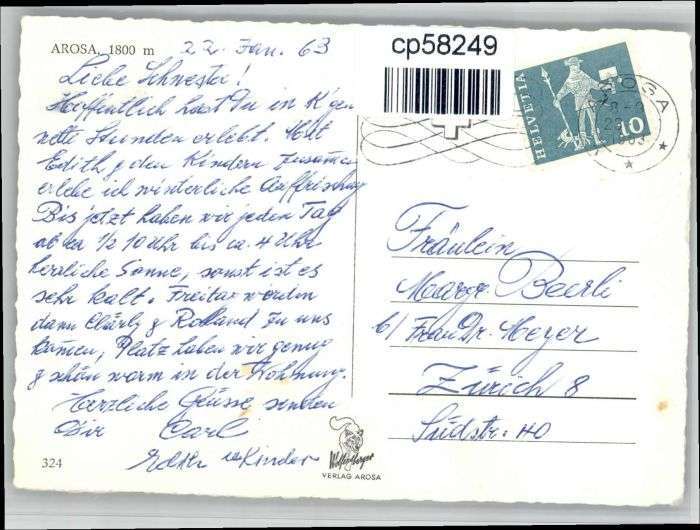 AROSA, 1800 m
22. Jan. 63
Liebe Schwester!
Hoffentlich hast Du in K'gen
nette Stunden erlebt. Mit
Edith & den Kindern zusammen
erlebe ich winterliche Auffrischung
Bis jetzt haben wir jeden Tag
ab ca. ½ 10 Uhr bis ca. 4 Uhr
herrliche Sonne, sonst ist es
sehr kalt. Freitag werden
dann Charly & Rolland zu uns
kommen, Platz haben wir genug
& schön warm in der Wohnung.
Herzliche Grüsse senden
Dir Carl
Edith u Kinder
324
cp58249
HELVETIA
10
AROSA
Fräulein
Margr. Beerli
b/ Frau Dr. Meyer
Zürich 8
Südstr. 40
VERLAG AROSA